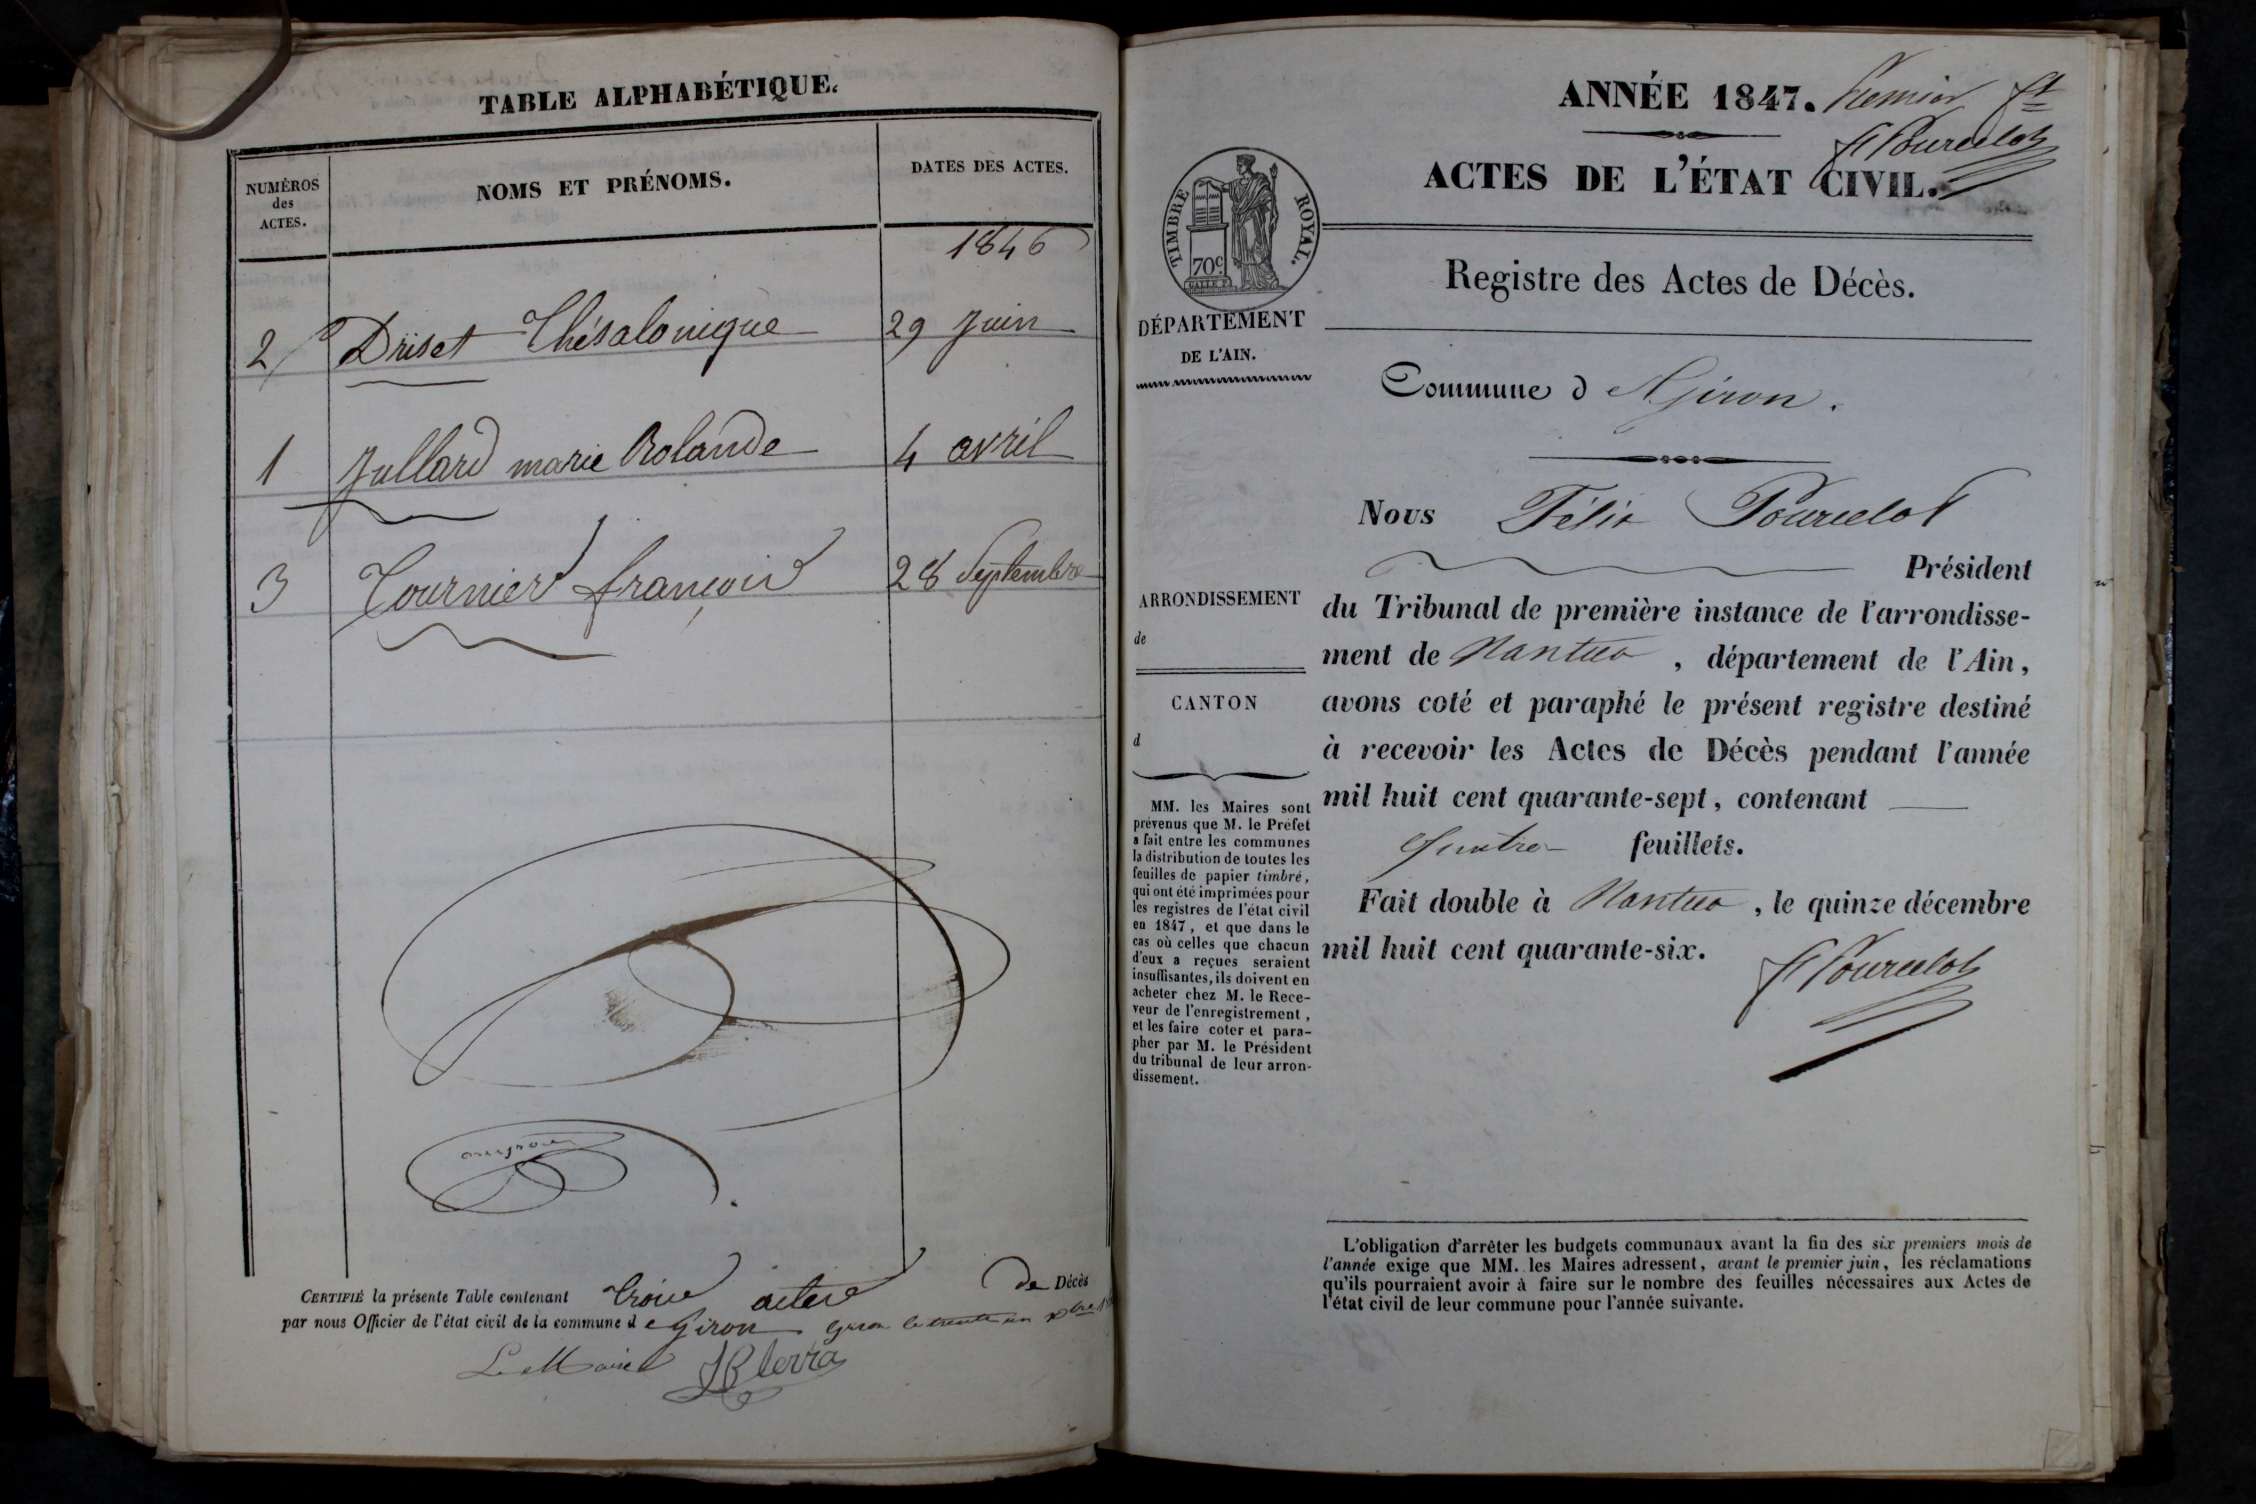 TABLE ALPHABÉTIQUE.
NUMÉROS
des
ACTES.
NOMS ET PRÉNOMS.
DATES DES ACTES.
1846
2 Driset Thésalonique 29 Juin
1 Jullard marie Rolande 4 avril
3 Tournier françois 28 Septembre
CERTIFIÉ la présente Table contenant trois actes de Décès
par nous Officier de l'état civil de la commune de Giron Giron le trente un Xbre
Le Maire
ANNÉE 1847. Premier ft
F Pourcelot
ACTES DE L'ÉTAT CIVIL.
TIMBRE ROYAL.
70c.
Registre des Actes de Décès.
DÉPARTEMENT
DE L'AIN.
Commune d Giron.
Nous Félix Pourcelot
Président
du Tribunal de première instance de l'arrondisse-
ment de Nantua, département de l'Ain,
avons coté et paraphé le présent registre destiné
à recevoir les Actes de Décès pendant l'année
mil huit cent quarante-sept, contenant
quatre feuillets.
Fait double à Nantua, le quinze décembre
mil huit cent quarante-six.
F Pourcelot
ARRONDISSEMENT
de
CANTON
d
MM. les Maires sont
prévenus que M. le Préfet
a fait entre les communes
la distribution de toutes les
feuilles de papier timbré,
qui ont été imprimées pour
les registres de l'état civil
en 1847, et que dans le
cas où celles que chacun
d'eux a reçues seraient
insuffisantes, ils doivent en
acheter chez M. le Rece-
veur de l'enregistrement,
et les faire coter et para-
pher par M. le Président
du tribunal de leur arron-
dissement.
L'obligation d'arrêter les budgets communaux avant la fin des six premiers mois de
l'année exige que MM. les Maires adressent, avant le premier juin, les réclamations
qu'ils pourraient avoir à faire sur le nombre des feuilles nécessaires aux Actes de
l'état civil de leur commune pour l'année suivante.